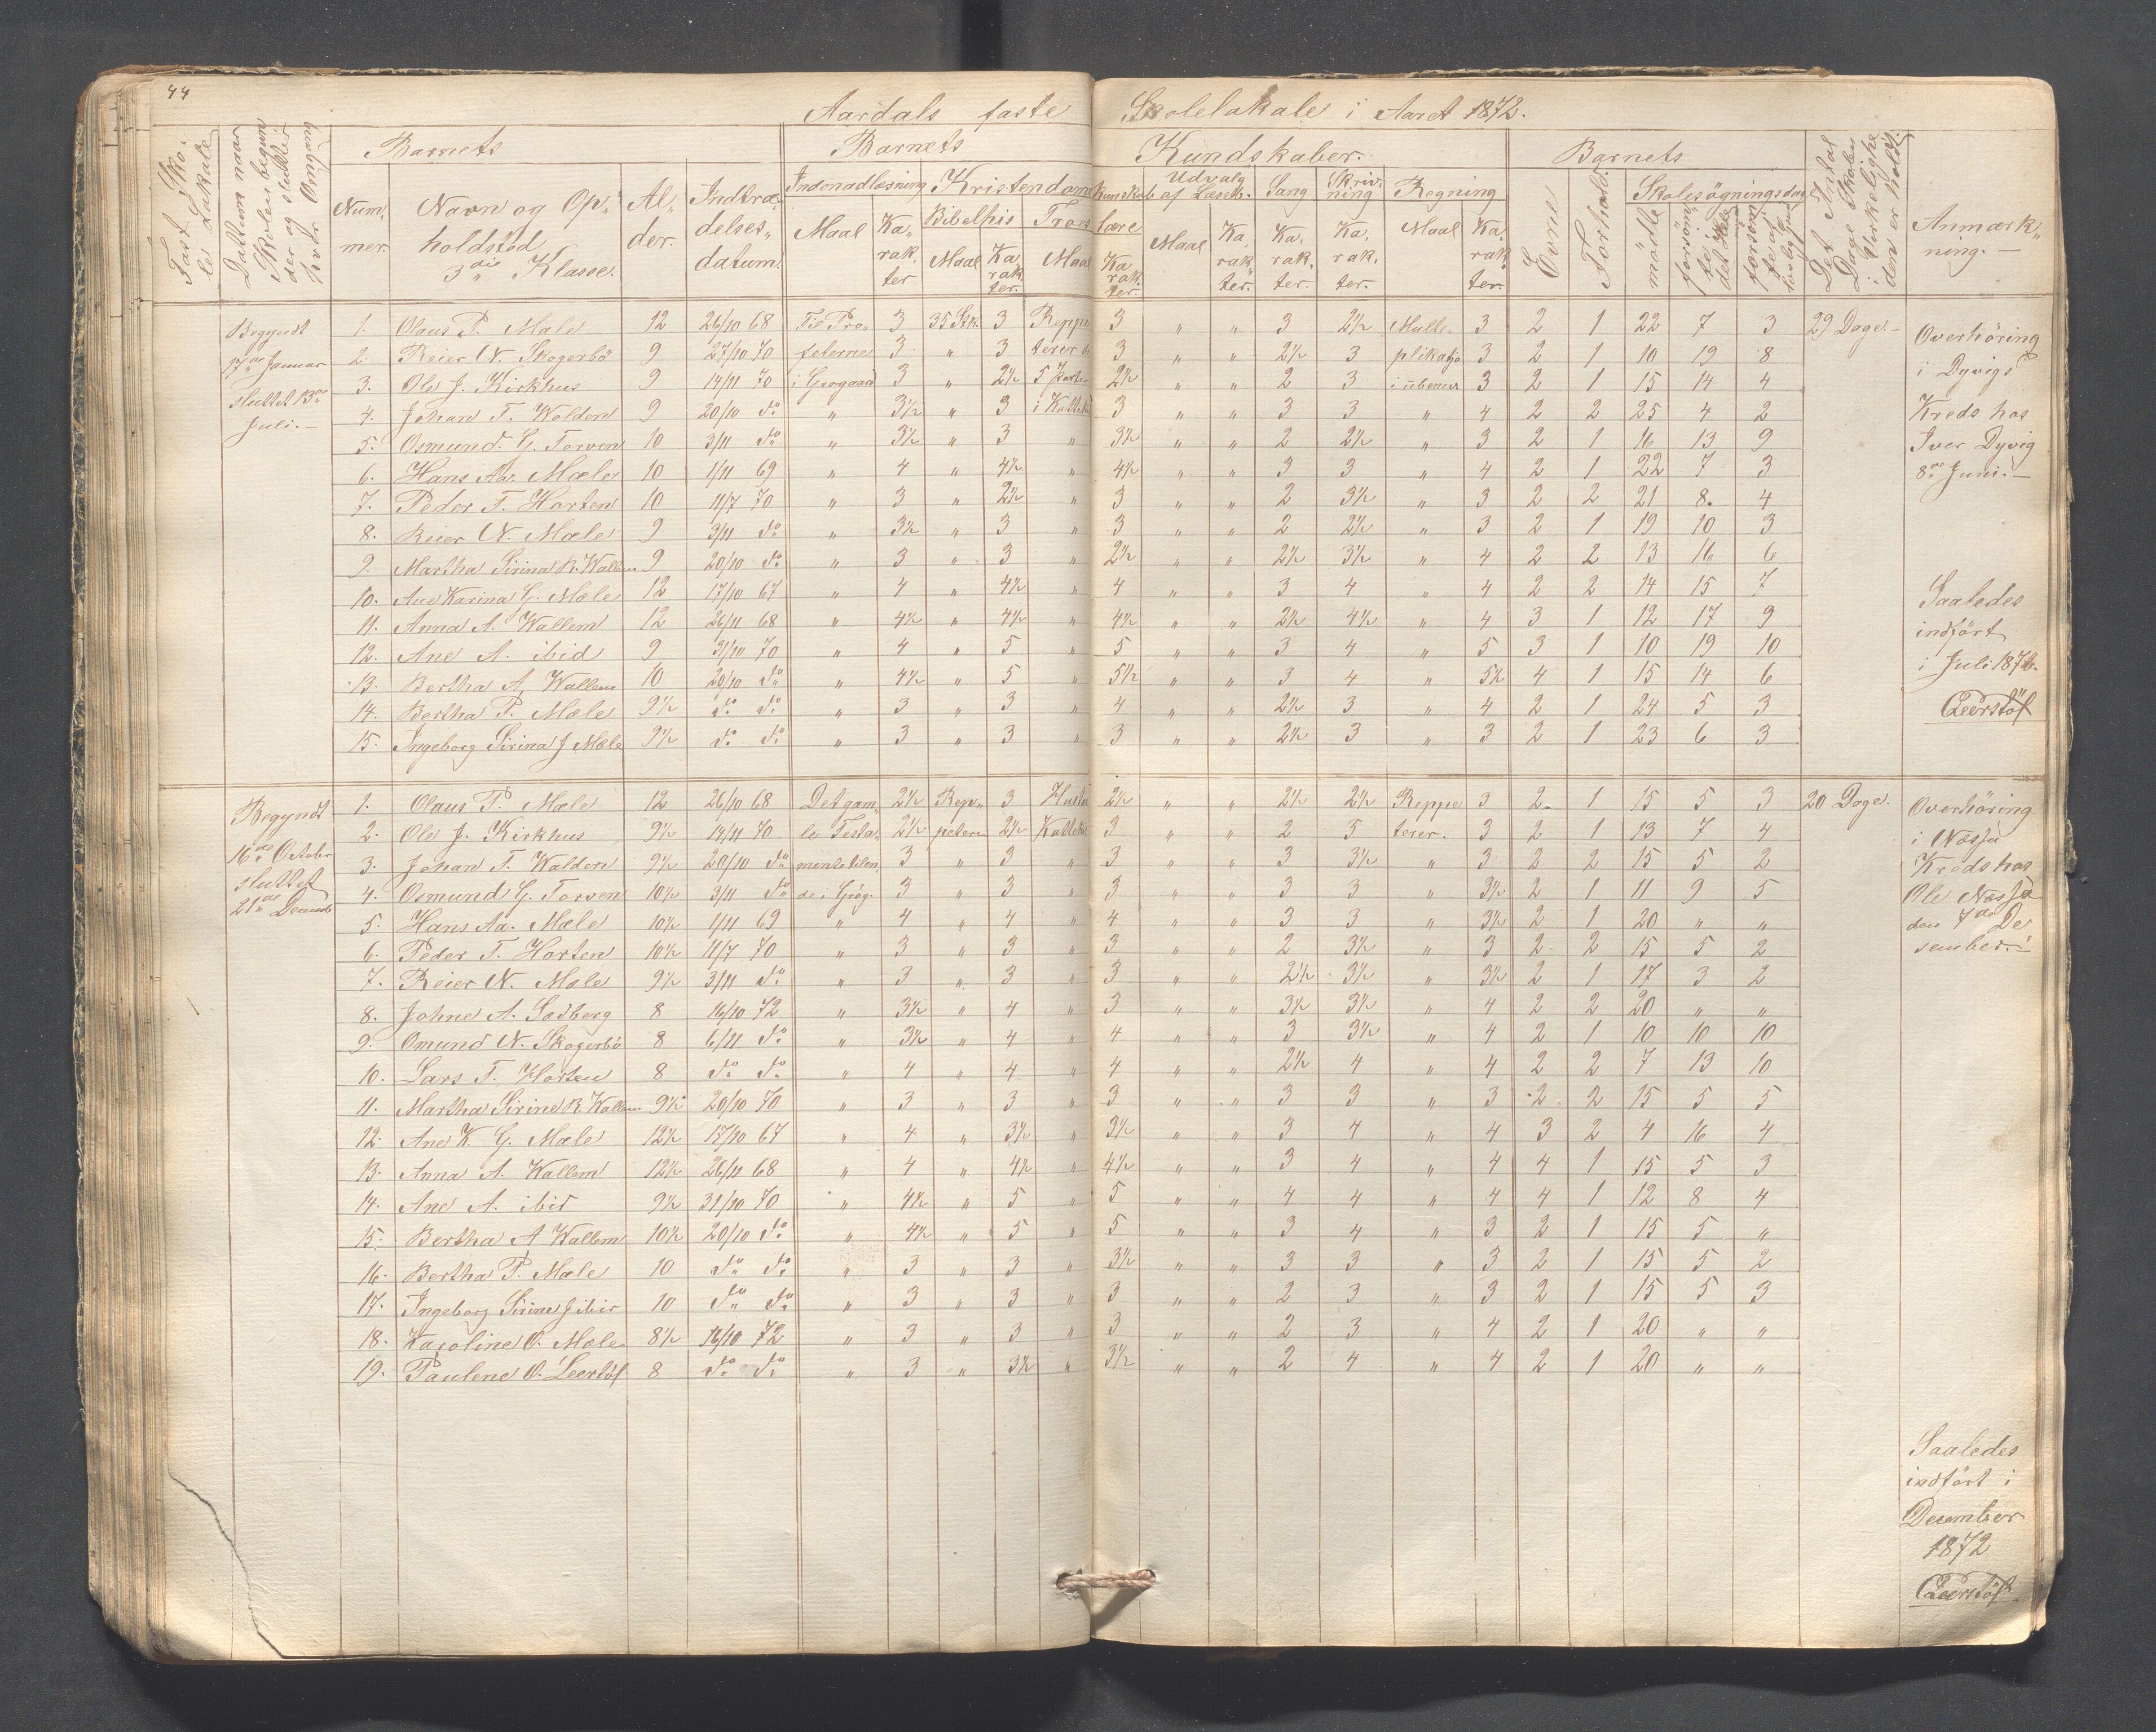 44
Aardals faste Skolelokale i Aaret 1872.
Fast Skolelokale
Datum naar Skolen begynder og slutter hver Omgang
Barnets
Nummer.
Navn og Opholdsted 3die Klasse.
Alder.
Indtrædelsesdatum
Barnets Kundskaber.
Indenadlæsning
Maal
Karakter
Kristendomskundskab
Bibelhis
Maal
Karakter.
Troeslære
Maal
Karakter.
Udvalg af Læseb.
Maal
Karakter.
Sang
Karakter.
Skrivning
Karakter.
Regning
Maal
Karakter.
Barnets
Evne
Forhold.
Skolesøgningsdage
mödte
forsömte i det Hele
forsömte af lovlig Grund
Det Antal Dage Skolen i Virkeligheden er holdt.
Anmærkning.
Begyndt 17de Januar sluttet 13de Juli.
1. Olaus P. Mæle 12 26/10 68 Til Pro- 3 35 Stk. 3 Reppe 3 " " 3 2½ Multe- 3 2 1 22 7 3 29 Dage.
2. Reier N. Skogerbö 9 27/10 70 feterne 3 " 3 terer de 3 " " 2½ 3 plikatjo 3 2 1 10 19 8
3. Ole J. Kirkhus 9 14/11 70 i Grogaard 3 " 2½ 5 Parter 2½ " " 2 3 i ubenevn 3 2 1 15 14 4
4. Johan T. Walden 9 20/10 do " 3½ " 3 i Kattek. 3 " " 3 3 " 4 2 2 25 4 2
5. Osmund. G. Torven 10 3/11 do " 3½ " 3 " 3½ " " 2 2½ " 3 2 1 16 13 9
6. Hans Aa. Mæle 10 1/11 69 " 4 " 4½ " 4½ " " 3 3 " 4 2 1 22 7 3
7. Peder T. Horten 10 11/7 70 " 3 " 2½ " 3 " " 2 3½ " 3 2 2 21 8. 4
8. Reier N. Mæle 9 3/11 do " 3½ " 3 " 3 " " 2 2½ " 3 2 1 19 10 3
9. Martha Sirina R. Wallem 9 20/10 do " 3 " 3 " 2½ " " 2½ 3½ " 4 2 2 13 16 6
10. Ane Karina G. Mæle 12 17/10 67 " 4 " 4½ " 4 " " 3 4 " 4 2 2 14 15 7
11. Anna A. Wallem 12 26/11 68 " 4½ " 4½ " 4½ " " 2½ 4½ " 4 3 1 12 17 9
12. Ane A. ibid 9 31/10 70 " 4 " 5 " 5 " " 3 4 " 5 3 1 10 19 10
13. Bertha A. Wallem 10 20/10 do " 4½ " 5 " 5½ " " 3 4 " 5½ 4 1 15 14 6
14. Bertha P. Mæle 9½ do do " 3 " 3 " 4 " " 2½ 3 " 4 2 1 24 5 3
15. Ingeborg Sirina J Mæle 9½ do do " 3 " 3 " 3 " " 2½ 3 " 3 2 1 23 6 3
Overhöring
i Dyvigs
Kreds hos
Iver Dyvig
8de Juni.
Saaledes
indført
i Juli 1872.
Leerstöl
Begyndt 16de Octobr sluttet 21de Decemb
1. Olaus P. Mæle 12 26/10 68 Det gam- 2½ Rep- 3 Hustav 2½ " " 2½ 2½ Reppe 3 2 1 15 5 3 20 Dage.
2. Ole J. Kirkhus 9½ 14/11 70 le Testa- 2½ petere 2½ Kattek. 3 " " 2 3 terer. 3 2 1 13 7 4
3. Johan T. Walden 9½ 20/10 do mente tilen- 3 " 3 " 3 " " 3 3½ " 3 2 2 15 5 2
4. Osmund G. Torven 10½ 3/11 do de i Grog. 3 " 3 " 3 " " 3 3 " 3½ 2 1 11 9 5
5. Hans Aa. Mæle 10½ 1/11 69 " 4 " 4 " 4 " " 3 3 " 3½ 2 1 20 " "
6. Peder T. Horten 10½ 11/7 70 " 3 " 3 " 3 " " 2 3½ " 3 2 2 15 5 2
7. Reier N. Mæle 9½ 3/11 do " 3 " 3 " 3 " " 2½ 3½ " 3½ 2 1 17 3 2
8. Johne A. Sedberg 8 16/10 72 " 3½ " 4 " 3 " " 3½ 3½ " 4 2 2 20 " "
9. Omund N. Skogerbö 8 6/11 do " 3½ " 4 " 4 " " 3 3½ " 4 2 1 10 10 10
10. Lars T. Horten 8 do do " 4 " 4 " 4 " " 2½ 4 " 4 2 2 7 13 10
11. Martha Sirine R. Wallem 9½ 20/10 70 " 3 " 3 " 3 " " 3 3 " 3 2 2 15 5 5
12. Ane K. G. Mæle 12½ 17/10 67 " 4 " 3½ " 3½ " " 3 4 " 4 3 2 4 16 4
13. Anna A. Wallem 12½ 26/11 68 " 4 " 4½ " 4½ " " 3 4 " 4 4 1 15 5 3
14. Ane A. ibid 9½ 31/10 70 " 4½ " 5 " 5 " " 4 4 " 4 4 1 12 8 4
15. Bertha A Wallem 10½ 20/10 do " 4½ " 5 " 5 " " 3 4 " 3 2 1 15 5 "
16. Bertha P. Mæle 10 do do " 3 " 3 " 3½ " " 3 3 " 3 2 1 15 5 2
17. Ingeborg Sirine J ibid 10 do do " 3 " 3 " 3 " " 2 3 " 3 2 1 15 5 3
18. Karoline O. Mæle 8½ 16/10 72 " 3 " 3 " 3 " " 2 3 " 4 2 1 20 " "
19. Paulene O. Leertöl 8 do do " 3 " 3½ " 3½ " " 2 4 " 4 2 1 20 " "
Overhöring
i Næsja
Kreds hos
Ole Næsja
den 7de De
sember.
Saaledes
indfört i
December
1872
Leerstöl